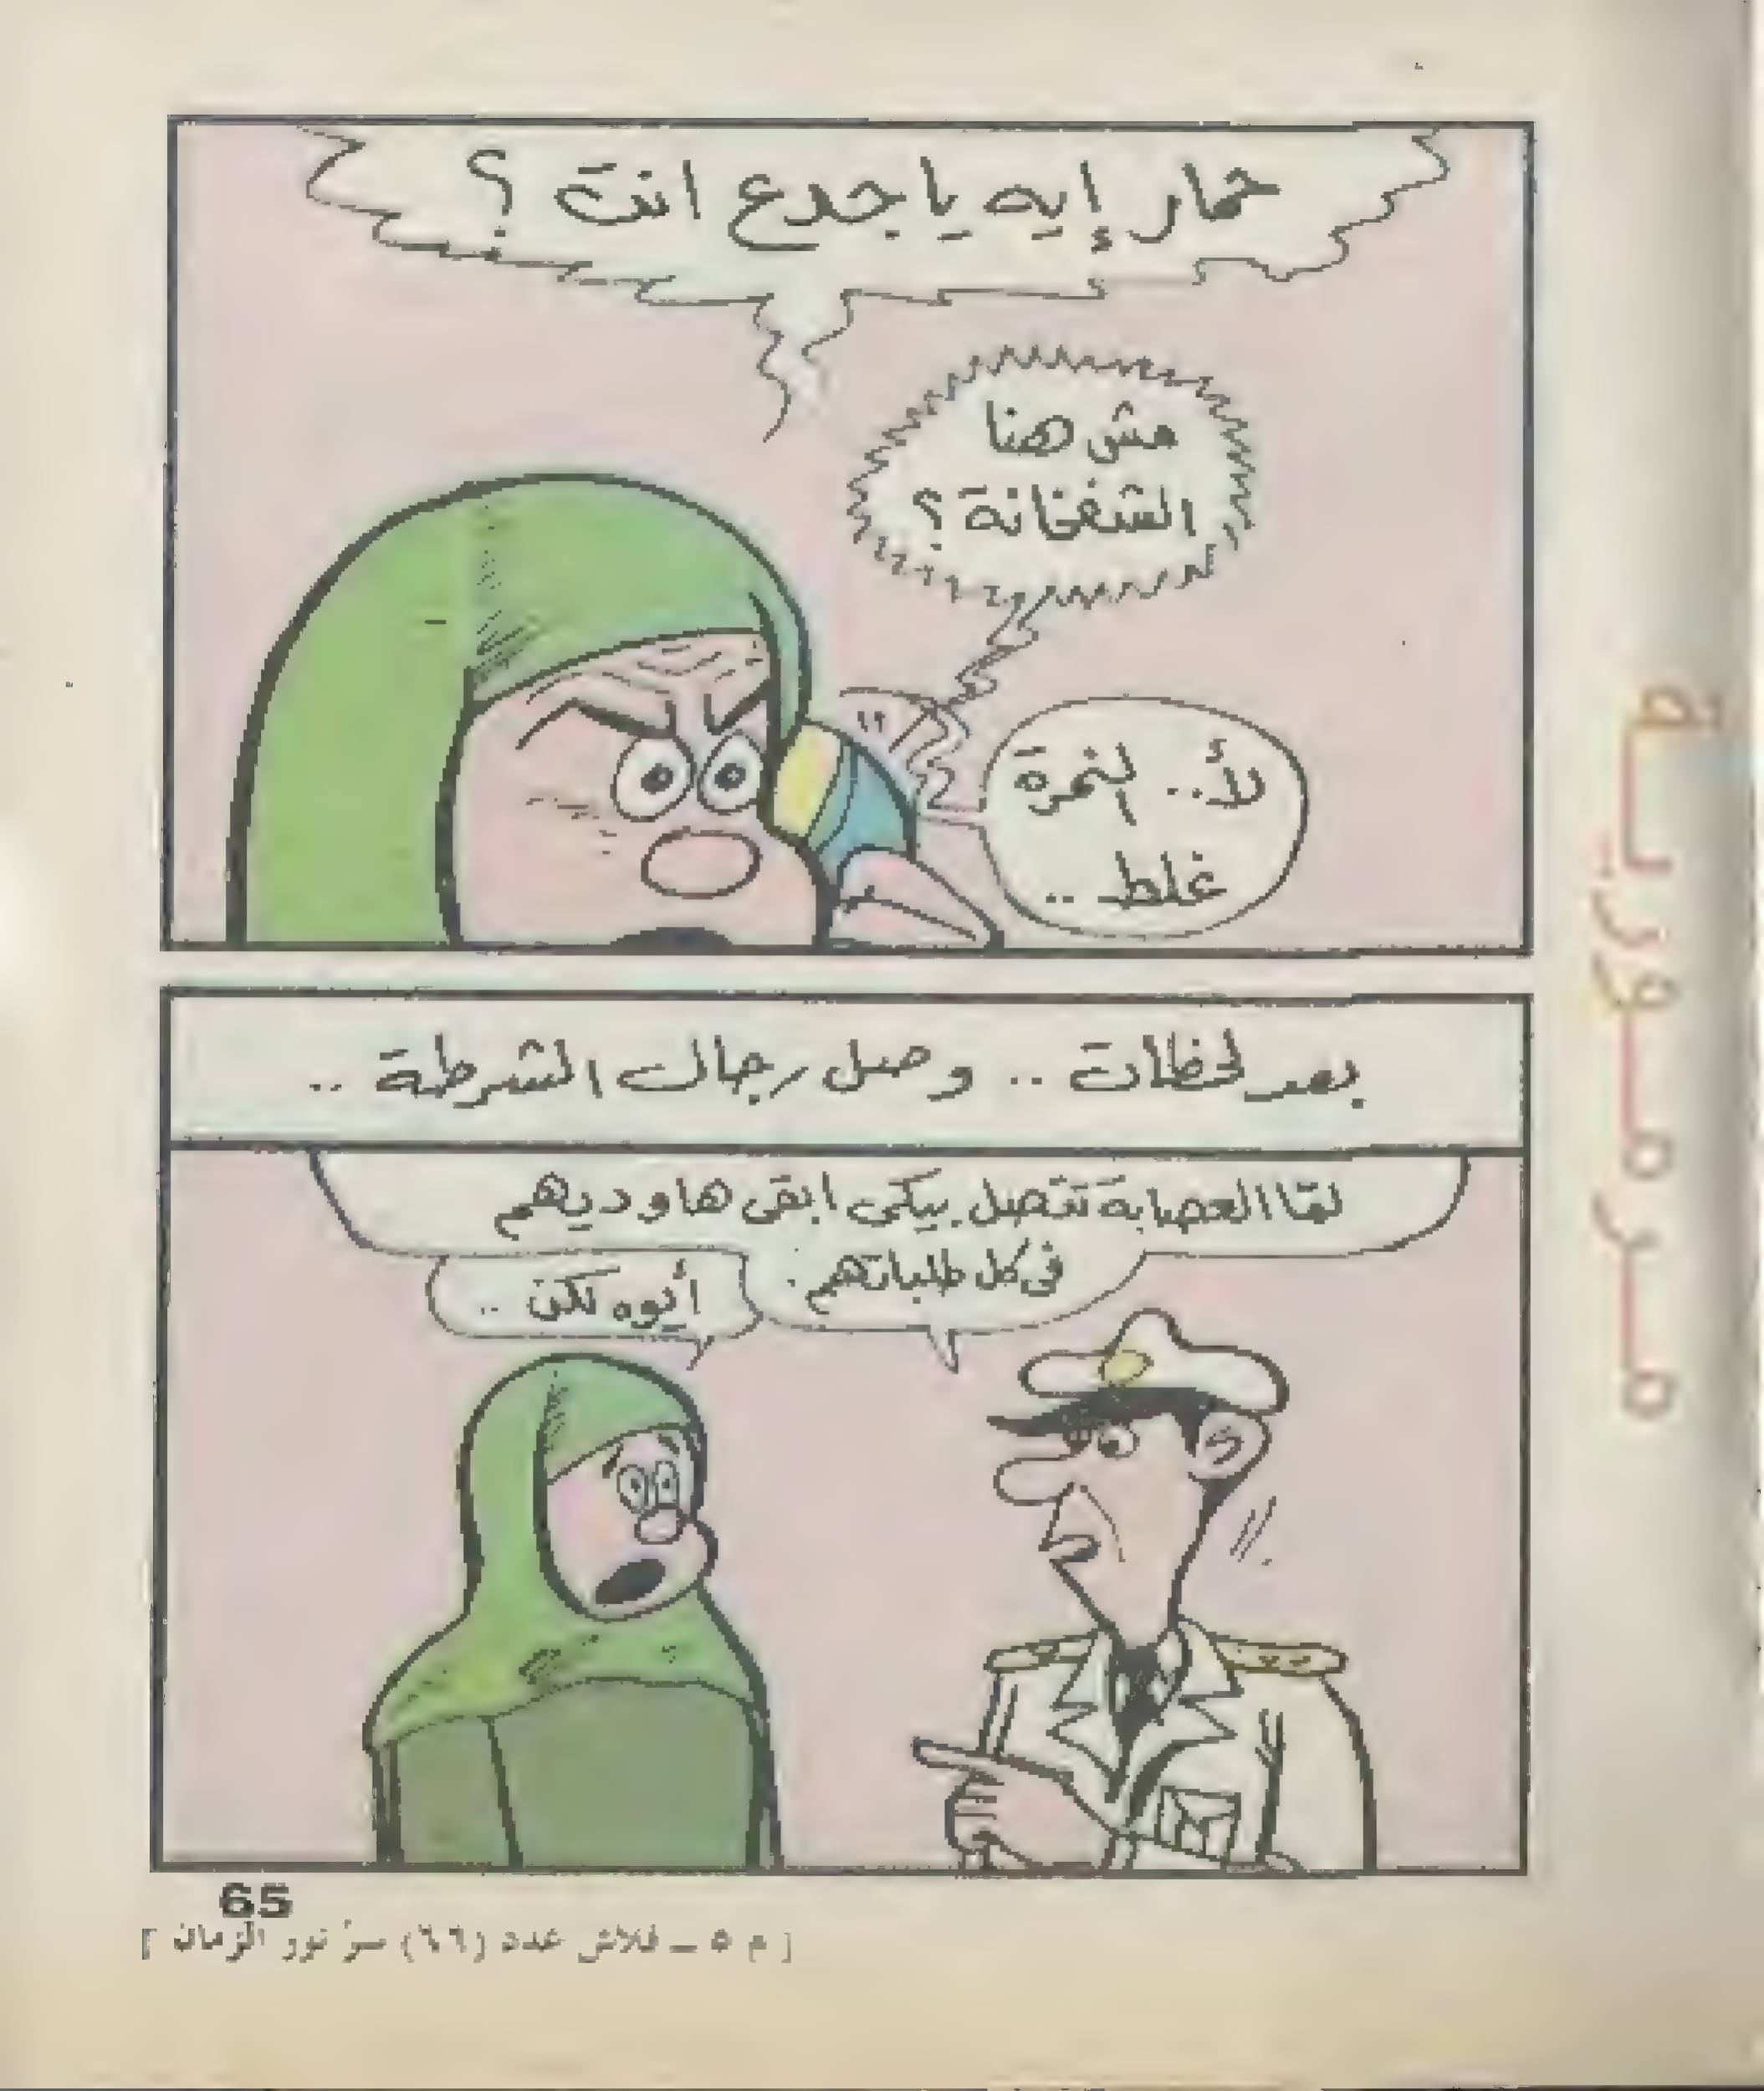 حمار إيه يا جدع انت ؟
مش هنا
الشفخانة ؟
لأ.. النمرة
غلط ..
بعد لحظات .. وصل رجال الشرطة ..
لمّا العصابة تتصل بيكى ابقى هاوديهم
فى كل طلباتهم .
أيوه لكن ..
65
[ م ٥ ــ فلاش عدد (٦٦) سرّ نور الزمان ]
مــرمــوريــة